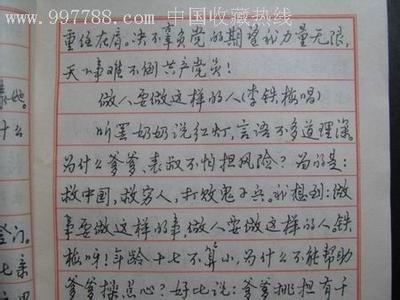 www.997788.com 中国收藏热线
重任在肩。决不辜负党的期望我力量无限，
天下事难不倒共产党员！
做人要做这样的人(李铁梅唱)
听罢奶奶说红灯，言语不多道理深。
为什么爹爹、表叔不怕担风险？为的是：
救中国，救穷人，打败鬼子兵。我想到：做
事要做这样的事，做人要做这样的人。铁
梅呀！年龄十七不算小，为什么不能帮助
爹爹操点心？好比说：爹爹挑担有千
什么
登门。
七亲